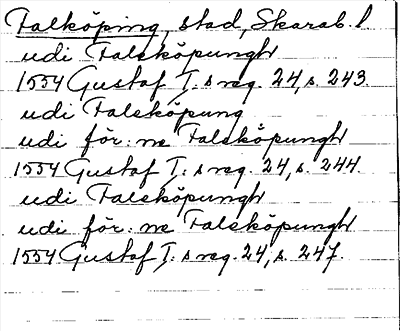 Falköping, stad, Skarab. l
udi Falsköpungh
1554 Gustaf I:s reg. 24, s. 243.
udi Falsköpung
udi för:ne Falsköpungh
1554 Gustaf I:s reg. 24, s. 244.
udi Falsköpungh
udi för:ne Falsköpungh
1554 Gustaf I:s reg. 24, s. 247.